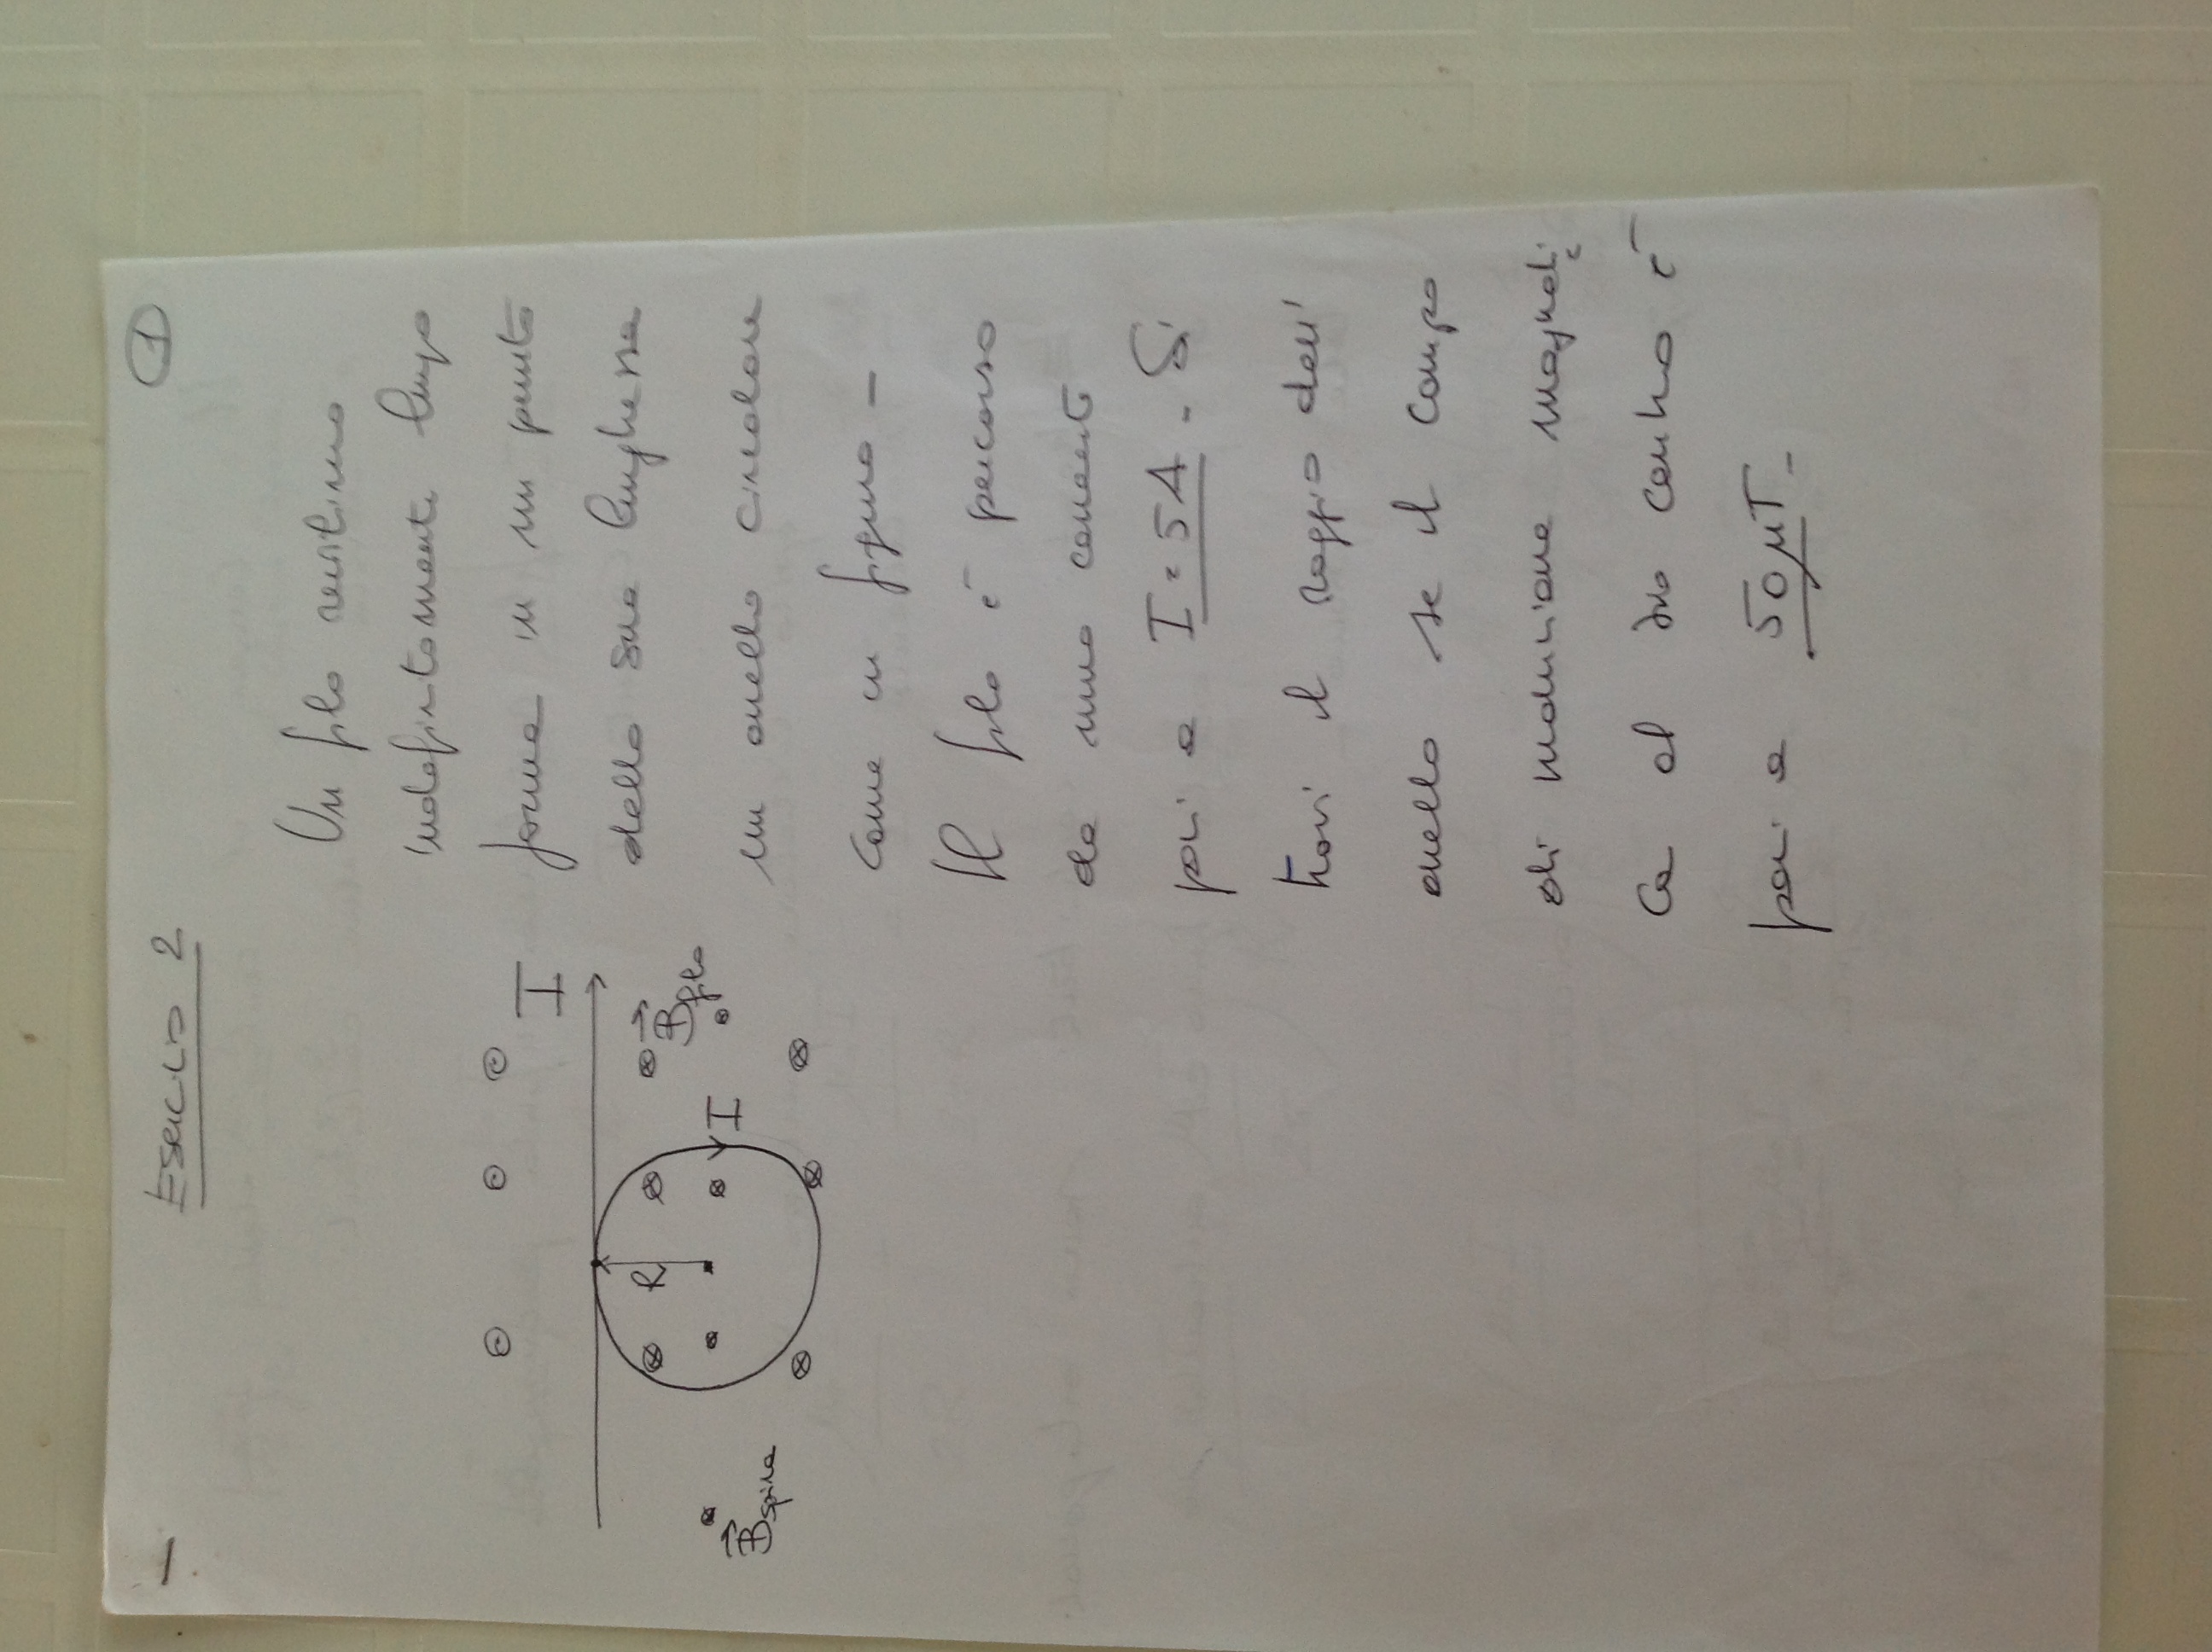 1
Esercizio 2
Un filo rettilineo
indefinitamente lungo
forma in un punto
della sua lunghezza
un anello circolare
come in figura -
Il filo è percorso
da una corrente
pari a I = 5A - Si
trovi il raggio dell'
anello se il campo
di induzione magneti
ca al suo centro è
pari a 50 μT -
I
R
B filo
I
B spira